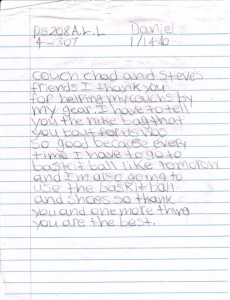 PS208 A.L.L Daniel
4-307 1/14/10
couch chad and Steves
friends I thank you
for helping my couchs by
my gear. I have to tell
you the nike bag that
you bayt for us was
so good because every
time I have to go to
baskit ball like tomorrow
and I'm also going to
use the baskit ball
and shoes so thank
you and one more thing
you are the best.